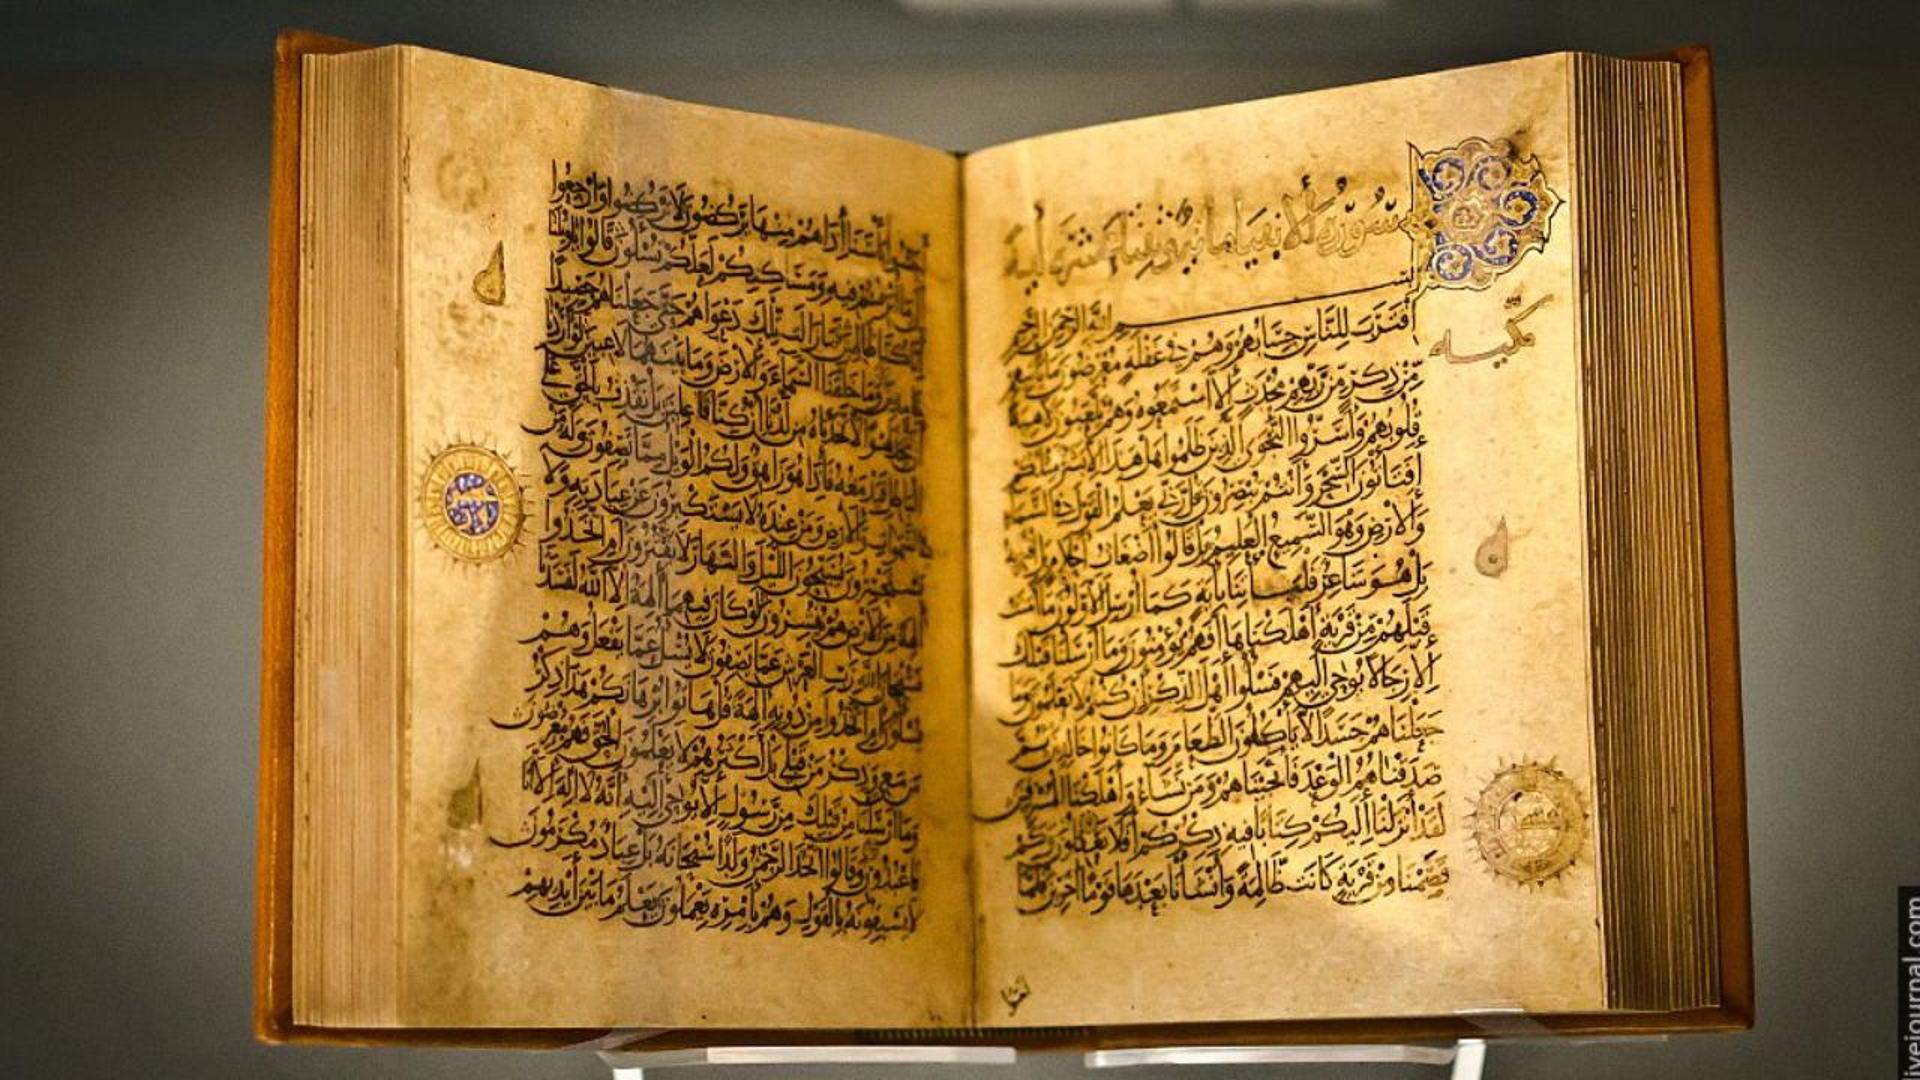 سورة الانبيا مايه و اثنتا عشرة اية
بسم الله الرحمن الرحيم
مكية
اقترب للناس حسابهم وهم في غفلة معرضون ما يأتيهم
من ذكر من ربهم محدث إلا استمعوه وهم يلعبون لاهية
قلوبهم وأسروا النجوى الذين ظلموا هل هذا إلا بشر مثلكم
أفتأتون السحر وأنتم تبصرون قل ربي يعلم القول في السماء
والارض وهو السميع العليم بل قالوا أضغاث أحلام بل افتريه
بل هو شاعر فليأتنا بآية كما أرسل الاولون ما آمنت
قبلهم من قرية أهلكناها أفهم يؤمنون وما أرسلنا قبلك
إلا رجالا نوحي إليهم فسئلوا أهل الذكر إن كنتم لا تعلمون وما
جعلناهم جسدا لا يأكلون الطعام وما كانوا خالدين ثم
صدقناهم الوعد فأنجيناهم ومن نشاء وأهلكنا المسرفين
لقد أنزلنا إليكم كتابا فيه ذكركم أفلا تعقلون وكم
قصمنا من قرية كانت ظالمة وأنشأنا بعدها قوما آخرين فلما
أحسوا بأسنا إذا هم منها يركضون لا تركضوا وارجعوا
ما أترفتم فيه ومساكنكم لعلكم تسئلون قالوا يا ويلنا
إنا كنا ظالمين فما زالت تلك دعواهم حتى جعلناهم حصيدا
خامدين وما خلقنا السماء والارض وما بينهما لاعبين لو أردنا
نتخذ لهوا لاتخذناه من لدنا إن كنا فاعلين بل نقذف بالحق على
الباطل فيدمغه فإذا هو زاهق ولكم الويل مما تصفون وله من
السموات والارض ومن عنده لا يستكبرون عن عبادته ولا
يستحسرون يسبحون الليل والنهار لا يفترون أم اتخذوا
آلهة من الارض هم ينشرون لو كان فيهما آلهة إلا الله لفسدتا
فسبحان الله رب العرش عما يصفون لا يسئل عما يفعل وهم
يسئلون أم اتخذوا من دونه آلهة قل هاتوا برهانكم هذا ذكر
من معي وذكر من قبلي بل أكثرهم لا يعلمون الحق فهم معرضون
وما أرسلنا من قبلك من رسول إلا نوحي إليه أنه لا إله إلا أنا
فاعبدون وقالوا اتخذ الرحمن ولدا سبحانه بل عباد مكرمون
لا يسبقونه بالقول وهم بأمره يعملون يعلم ما بين أيديهم
livejournal.com